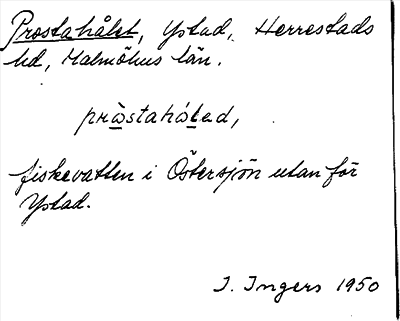 Prostahålet, Ystad, Herrestads
hd, Malmöhus län.
pròstahóled,
fiskevatten i Östersjön utan för
Ystad.
I. Ingers 1950